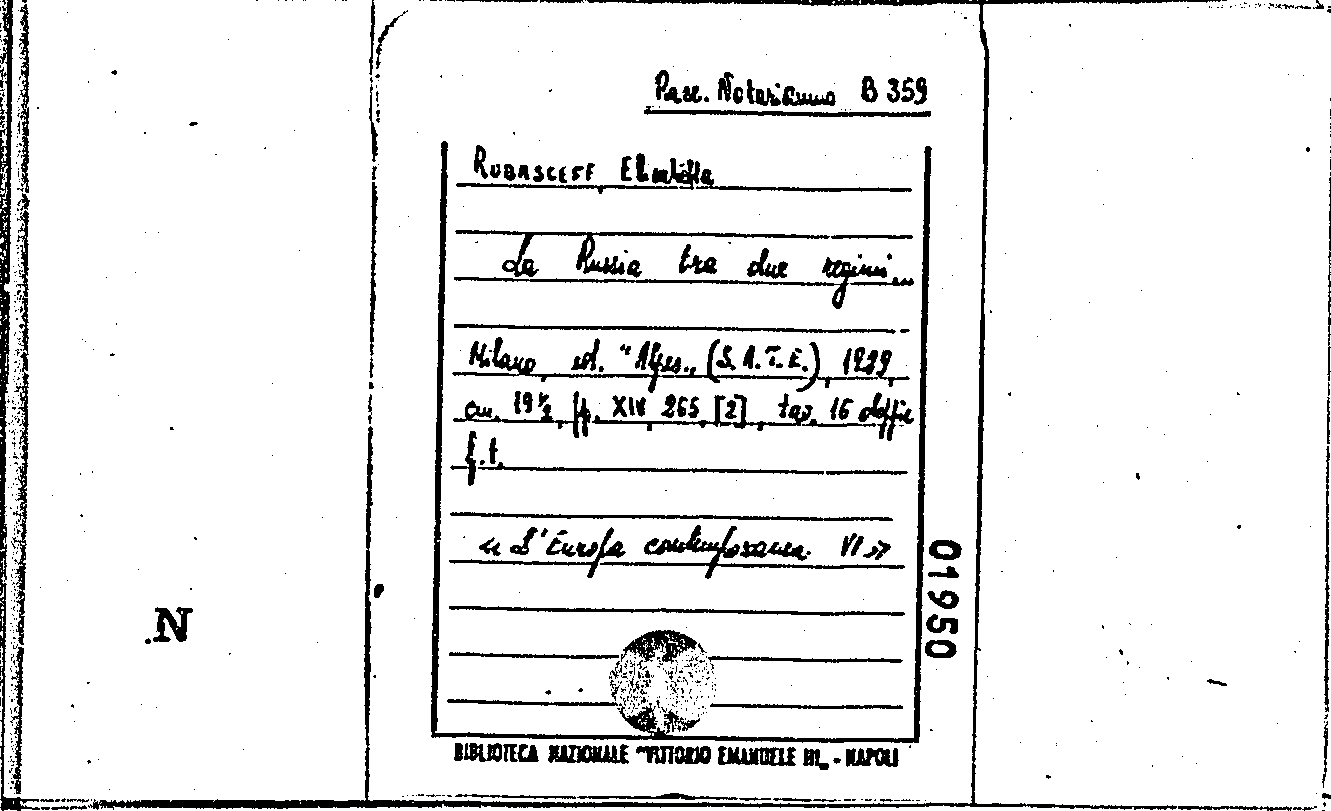 Racc. Notarianno B 359
RUBASCEFF, Elisabetta
La Russia tra due regimi...
Milano, ed. "Alpes„ (S. A. T. E.), 1929,
cm. 19½, pp. XIV, 265, [2], tav. 16 doppie
f.t.
« L'Europa contemporanea. VI »
01950
N.
BIBLIOTECA NAZIONALE "VITTORIO EMANUELE III„ - NAPOLI